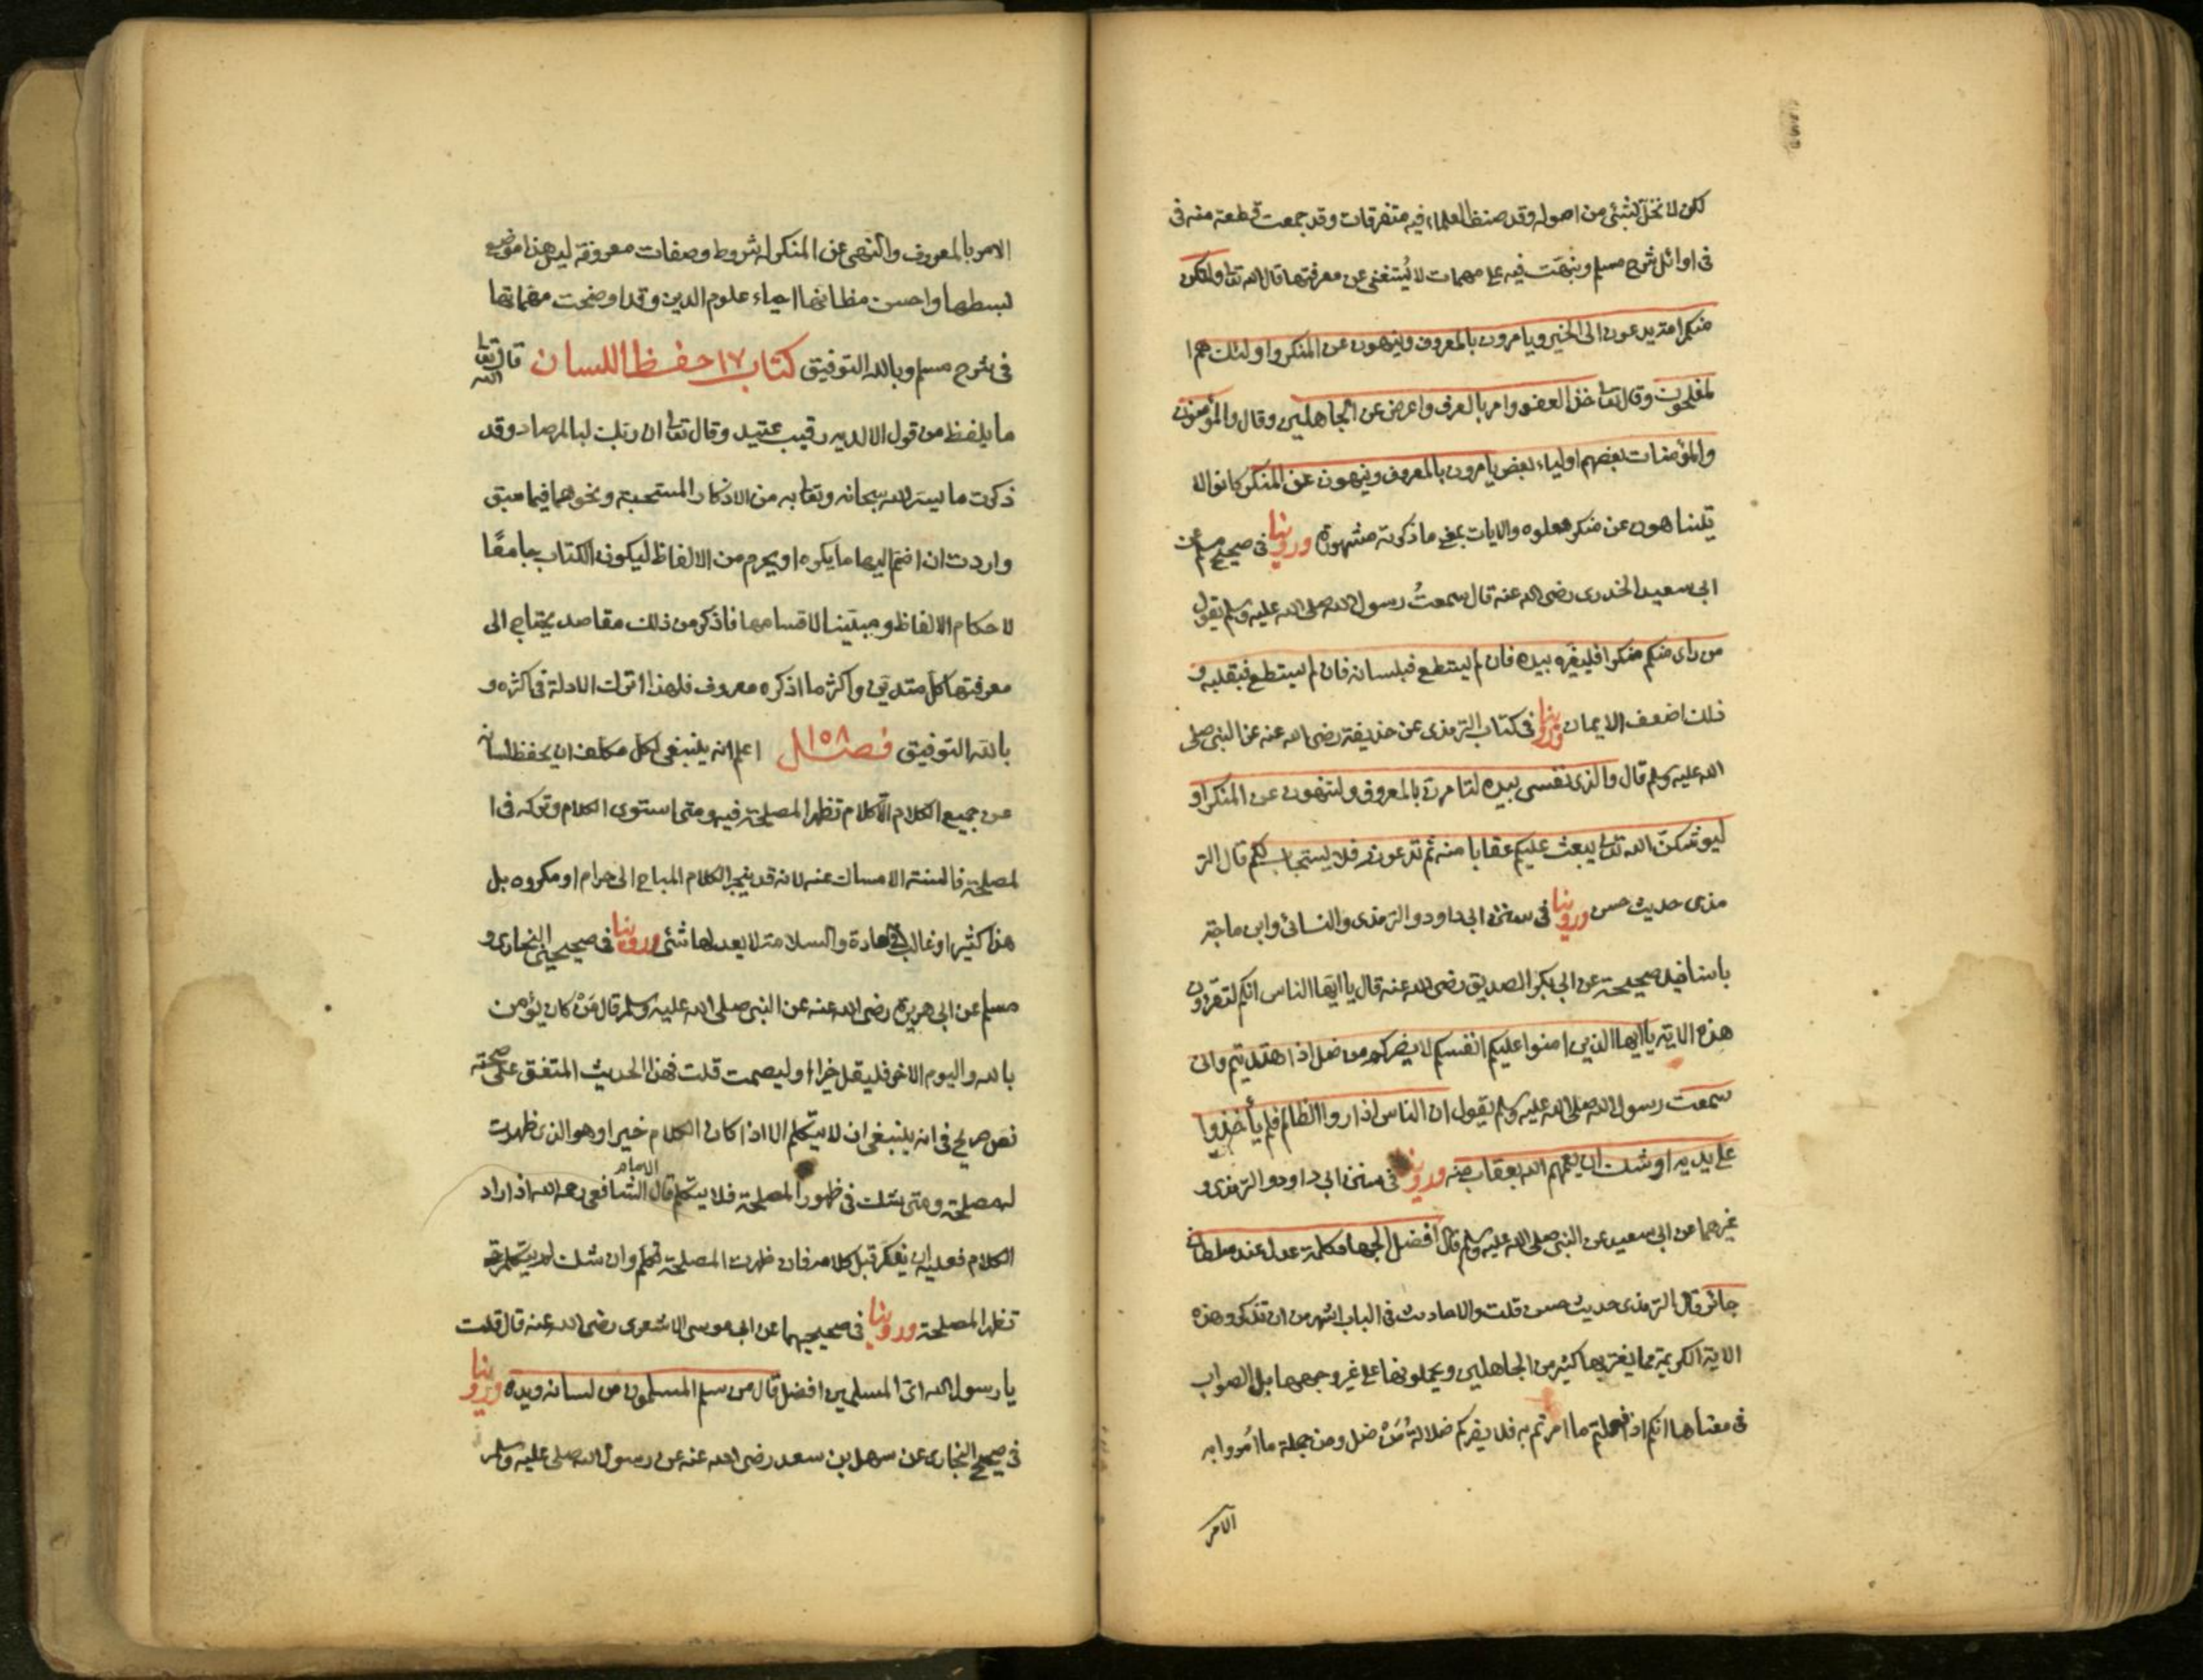 لكن لا نخل بشئ من اصوله وقد صنف العلماء فيه متفرقات وقد جمعت قطعة منه فى
فى اوائل شرح مسلم ونبهت فيه على مهمات لا يُستغنى عن معرفتها قال الله تعا ولتكن
منكم امة يدعون الى الخير ويامرون بالمعروف وينهون عن المنكر واولئك هم ا
لمفلحون وقال تعا خذ العفو وامر بالعرف واعرض عن الجاهلين وقال والمؤمنون
والمؤمنات بعضهم اولياء بعض يامرون بالمعروف وينهون عن المنكر كانوا لا
يتناهون عن منكر فعلوه والايات بمعنى ما ذكرته مشهورة وروينا فى صحيح مسلم عن
ابى سعيد الخدرى رضى الله عنه قال سمعتُ رسول الله صلى الله عليه وسلم يقول
من راى منكم منكرا فليغيره بيده فان لم يستطع فبلسانه فان لم يستطع فبقلبه و
ذلك اضعف الايمان وروينا فى كتاب الترمذى عن حذيفة رضى الله عنه عن النبى صلى
الله عليه وسلم قال والذى نفسى بيده لتامرن بالمعروف ولتنهون عن المنكر او
ليوشكنّ الله تعا يبعث عليكم عقابا منه ثم تدعونه فلا يستجاب لكم قال التر
مذى حديث حسن وروينا فى سنن ابى داود والترمذى والنسائى وابن ماجة
باسانيد صحيحة عن ابى بكر الصديق رضى الله عنه قال يا ايها الناس انكم لتقرؤن
هذه الاية يا ايها الذين امنوا عليكم انفسكم لا يضركم من ضل اذا اهتديتم وانى
سمعت رسول الله صلى الله عليه وسلم يقول ان الناس اذا روا الظالم فلم يأخذوا
على يديه اوشك ان يعمهم الله بعقاب منه وروينا فى سنن ابى داود والترمذى و
غيرهما عن ابى سعيد عن النبى صلى الله عليه وسلم قال افضل الجهاد كلمة عدل عند سلطان
جائر قال الترمذى حديث حسن قلت والاحاديث فى الباب اشهر من ان تذكر وهذه
الاية الكريمة مما يغتر بها كثير من الجاهلين ويحملونها على غير وجهها بل الصواب
فى معناها انكم اذا فعلتم ما امرتم به فلا يضركم ضلالةُ مَنْ ضل ومن جملة ما امُروا به
الامر
الامر بالمعروف والنهى عن المنكر له شروط وصفات معروفة ليس هذا موضع
لبسطها واحسن مظانها احياء علوم الدين وقد اوضحت مهماتها
فى شرح مسلم وبالله التوفيق كتاب ١٧ حفظ اللسان قال الله تعا
ما يلفظ من قول الا لديه رقيب عتيد وقال تعا ان ربك لبالمرصاد وقد
ذكرت ما يسر الله سبحانه وتعا به من الاذكار المستحبة ونحوهما فيما سبق
واردت ان اضم اليها ما يكره او يحرم من الالفاظ ليكون الكتاب جامعًا
لاحكام الالفاظ ومبيّنا لاقسامها فاذكر من ذلك مقاصد يحتاج الى
معرفتها كل متدين واكثر ما اذكره معروف فلهذا اترك الادلة فى اكثره و
بالله التوفيق فصل ١٥٨ اعلم انه ينبغى لكل مكلف ان يحفظ لسانه
عن جميع الكلام الّا كلام تظهر المصلحة فيه ومتى استوى الكلام وتركه فى ا
لمصلحة فالسنة الامساك عنه لانه قد ينجر الكلام المباح الى حرام او مكروه بل
هذا كثير او غالب فى العادة والسلامة لا يعدلها شئ وروينا فى صحيحى البخارى و
مسلم عن ابى هريرة رضى الله عنه عن النبى صلى الله عليه وسلم قال مَنْ كان يؤمن
بالله واليوم الاخر فليقل خيرا او ليصمت قلت فهذا الحديث المتفق على صحته
نص صريح فى انه ينبغى ان لا يتكلم الا اذا كان الكلام خيرا وهو الذى ظهرت
له مصلحة ومتى شك فى ظهور المصلحة فلا يتكلم قال الامام الشافعى رحمه الله اذا اراد
الكلام فعليه ان يفكر قبل كلامه فان ظهرت المصلحة تكلم وان شك لم يتكلم حتى
تظهر المصلحة وروينا فى صحيحيهما عن ابى موسى الاشعرى رضى الله عنه قال قلت
يا رسول الله اىّ المسلمين افضل قال من سلم المسلمون من لسانه ويده وروينا
فى صحيح البخارى عن سهل بن سعد رضى الله عنه عن رسول الله صلى عليه وسلم